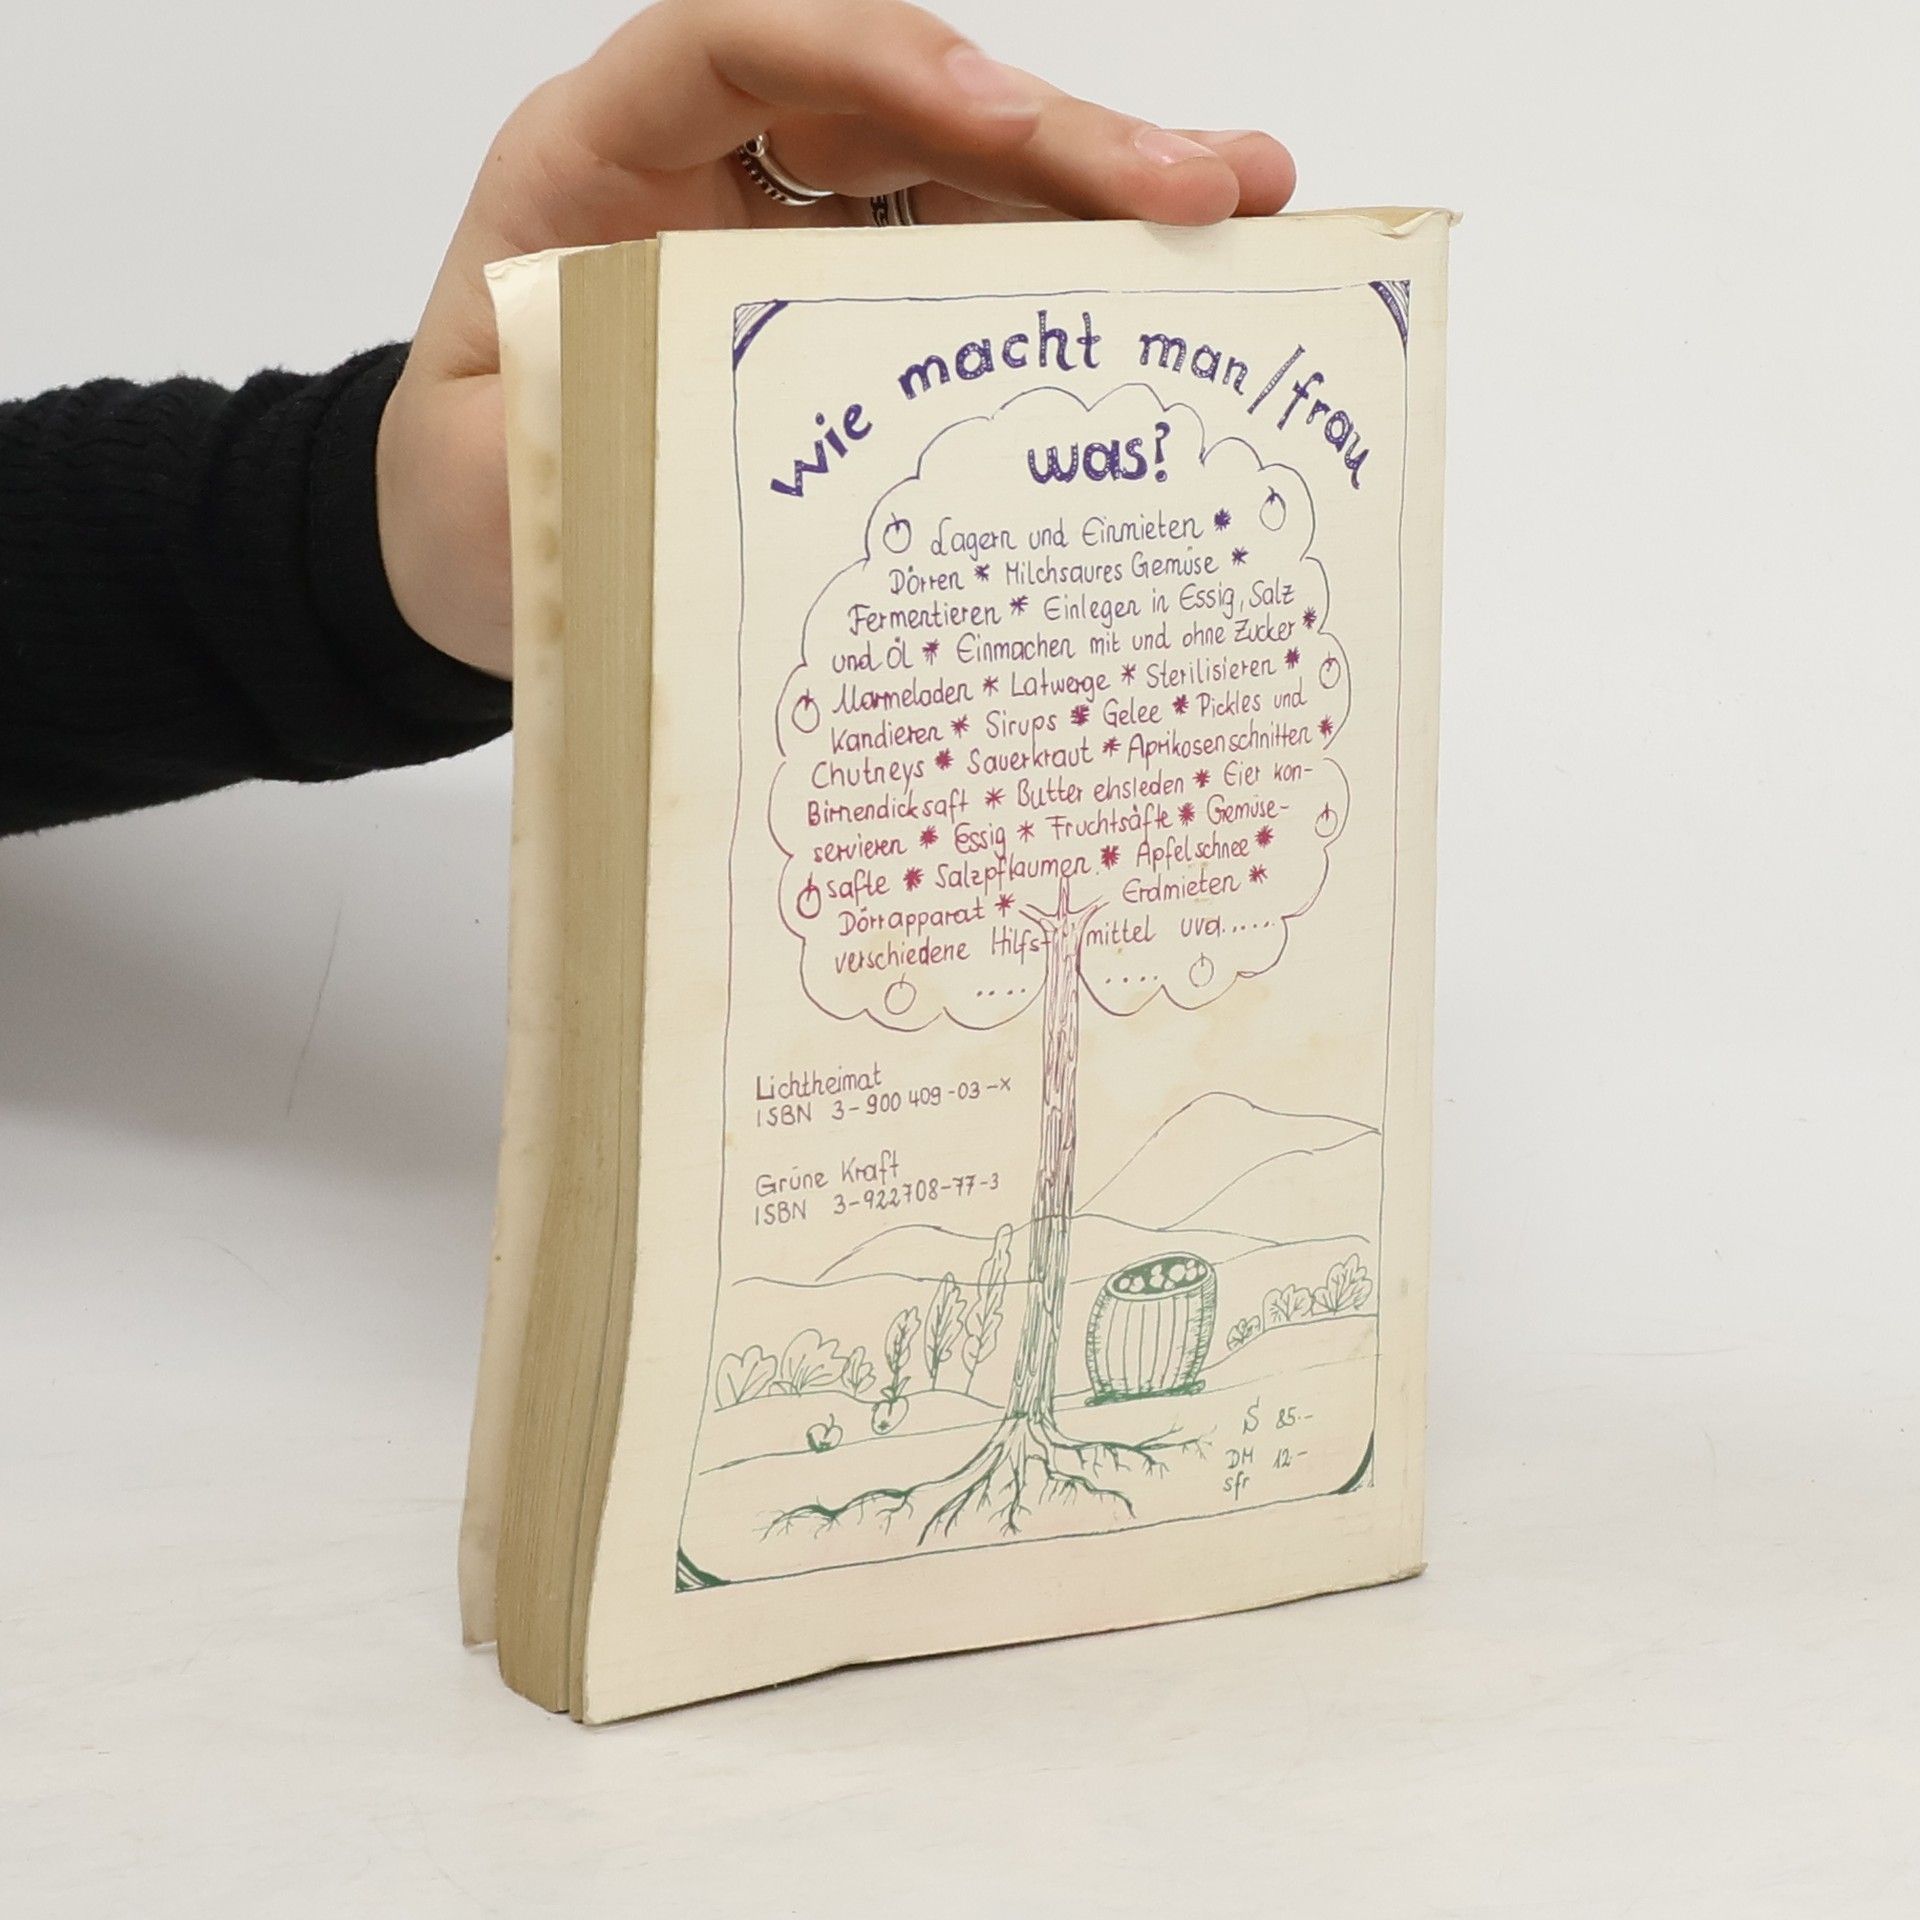 wie macht man/frau
was?
Lagern und Einmieten *
Dörren * Milchsaures Gemüse *
Fermentieren * Einlegen in Essig, Salz
und Öl * Einmachen mit und ohne Zucker *
Marmeladen * Latwerge * Sterilisieren *
Kandieren * Sirups * Gelee * Pickles und
Chutneys * Sauerkraut * Aprikosenschnitten *
Birnendicksaft * Butter einsieden * Eier kon-
servieren * Essig * Fruchtsäfte * Gemüse-
säfte * Salzpflaumen * Apfelschnee *
Dörrapparat * Erdmieten *
verschiedene Hilfsmittel uva......
.... ....
Lichtheimat
ISBN 3-900 409-03-X
Grüne Kraft
ISBN 3-922708-77-3
S 85.-
DM 12.-
sfr